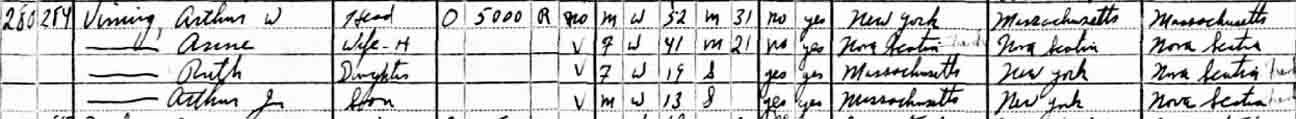 280 284 Vining, Arthur W Head O 5000 R no M W 52 M 31 no yes New York Massachusetts Massachusetts
—— Anne Wife-H V F W 41 M 21 no yes Nova Scotia Nova Scotia Nova Scotia
—— Ruth Daughter V F W 19 S yes yes Massachusetts New York Nova Scotia
—— Arthur Jr Son V M W 13 S yes yes Massachusetts New York Nova Scotia